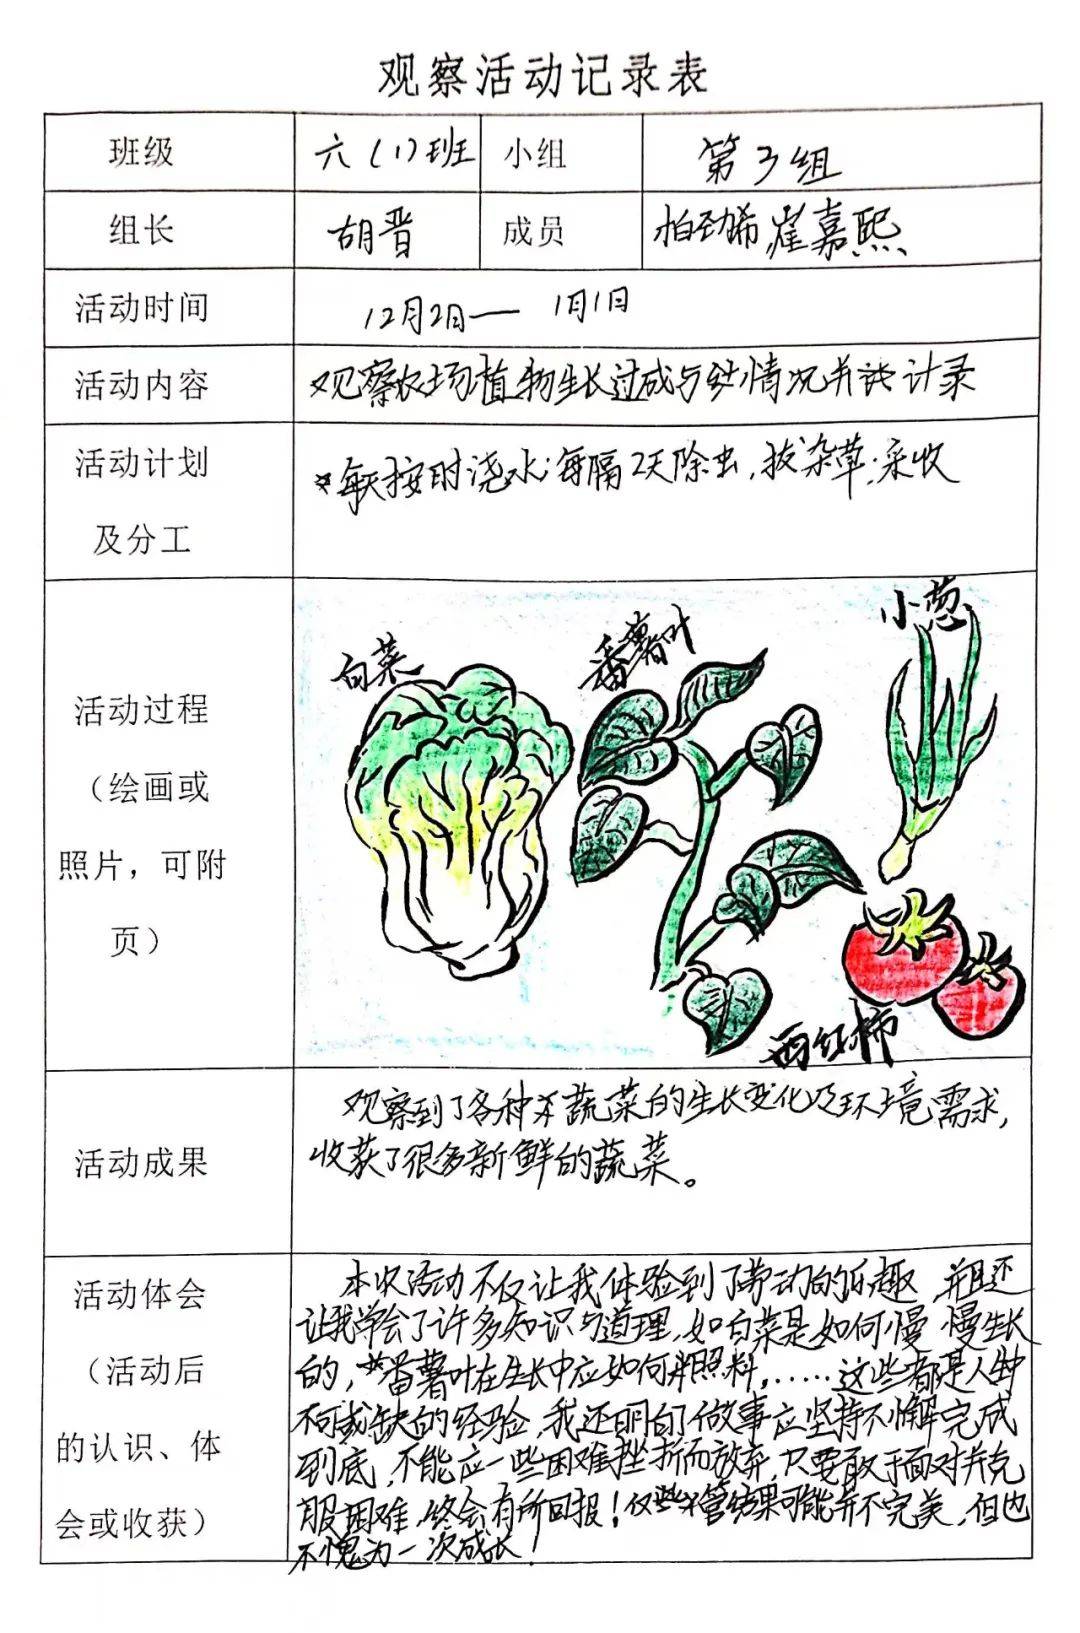 观察活动记录表
班级 六(1)班 小组 第3组
组长 胡晋 成员 柏劲希,崔嘉熙
活动时间 12月2日— 1月1日
活动内容 观察农场植物生长过成与 情况并 计录
活动计划
及分工
每天按时浇水;每隔2天除虫,拔杂草;采收
活动过程
(绘画或
照片,可附
页)
白菜
番薯叶
小葱
西红柿
活动成果
观察到了各种 蔬菜的生长变化及环境需求,
收获了很多新鲜的蔬菜。
活动体会
(活动后
的认识、体
会或收获)
本次活动不仅让我体验到了劳动的乐趣,并且还
让我学会了许多知识与道理,如白菜是如何慢慢生长
的,番薯叶在生长中应如何 照料,……这些都是人生中
不可或缺的经验,我还明白了做事应坚持不懈完成
到底,不能应一些困难挫折而放弃,只要敢于面对并克
服困难,终会有所回报! 管结果可能并不完美,但也
不愧为一次成长!